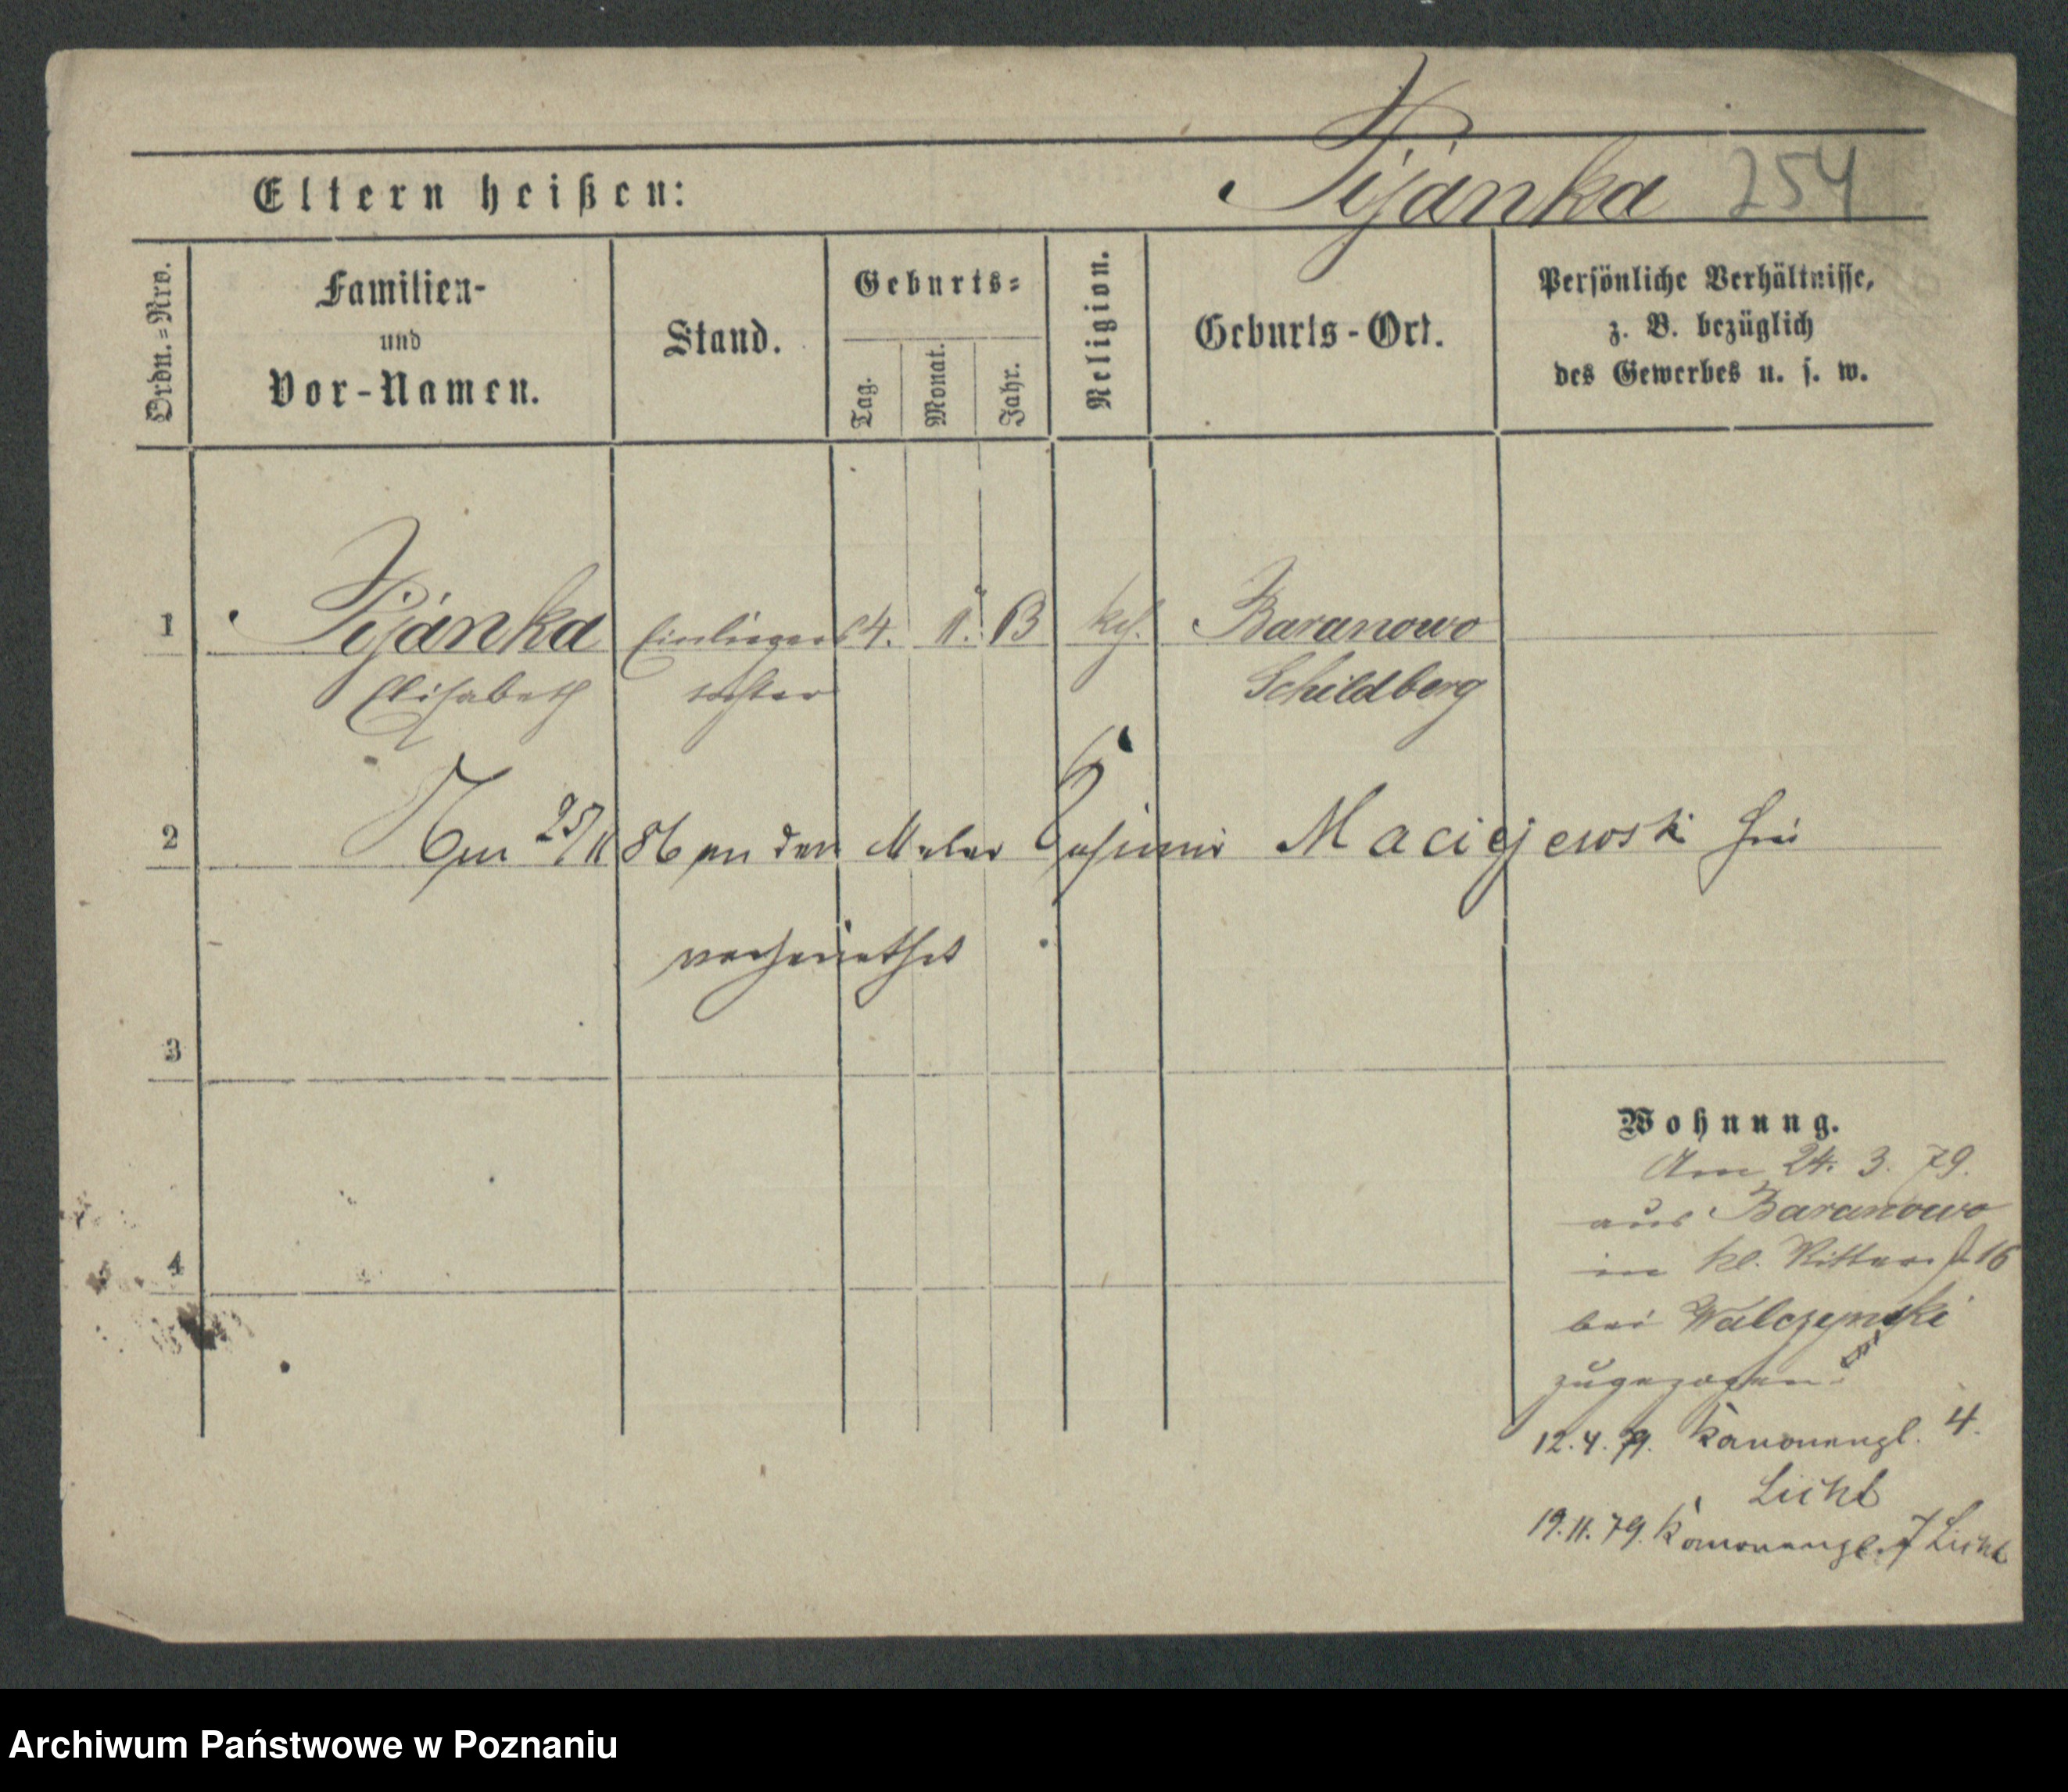 Pijánka 254
Eltern heißen:
Ordn.=Nro.
Familien-
und
Vor-Namen.
Stand.
Geburts=
Tag.
Monat.
Jahr.
Religion.
Geburts-Ort.
Persönliche Verhältnisse,
z. B. bezüglich
des Gewerbes u. s. w.
1 Pijánka Einliegers 4. 11. 13 kth. Baranowo
Elisabeth tochter Schildberg
2 25/11 86 an den Maler Casimir Maciejewski hier
verheirathet
3
4
Wohnung.
Am 24. 3. 79.
aus Baranowo
in kl. Ritterst 16
bei Walczynski
zugezogen.
12.4.79. Kanonenpl. 4.
Licht
19.11.79. Kanonenpl. 7 Licht
Archiwum Państwowe w Poznaniu